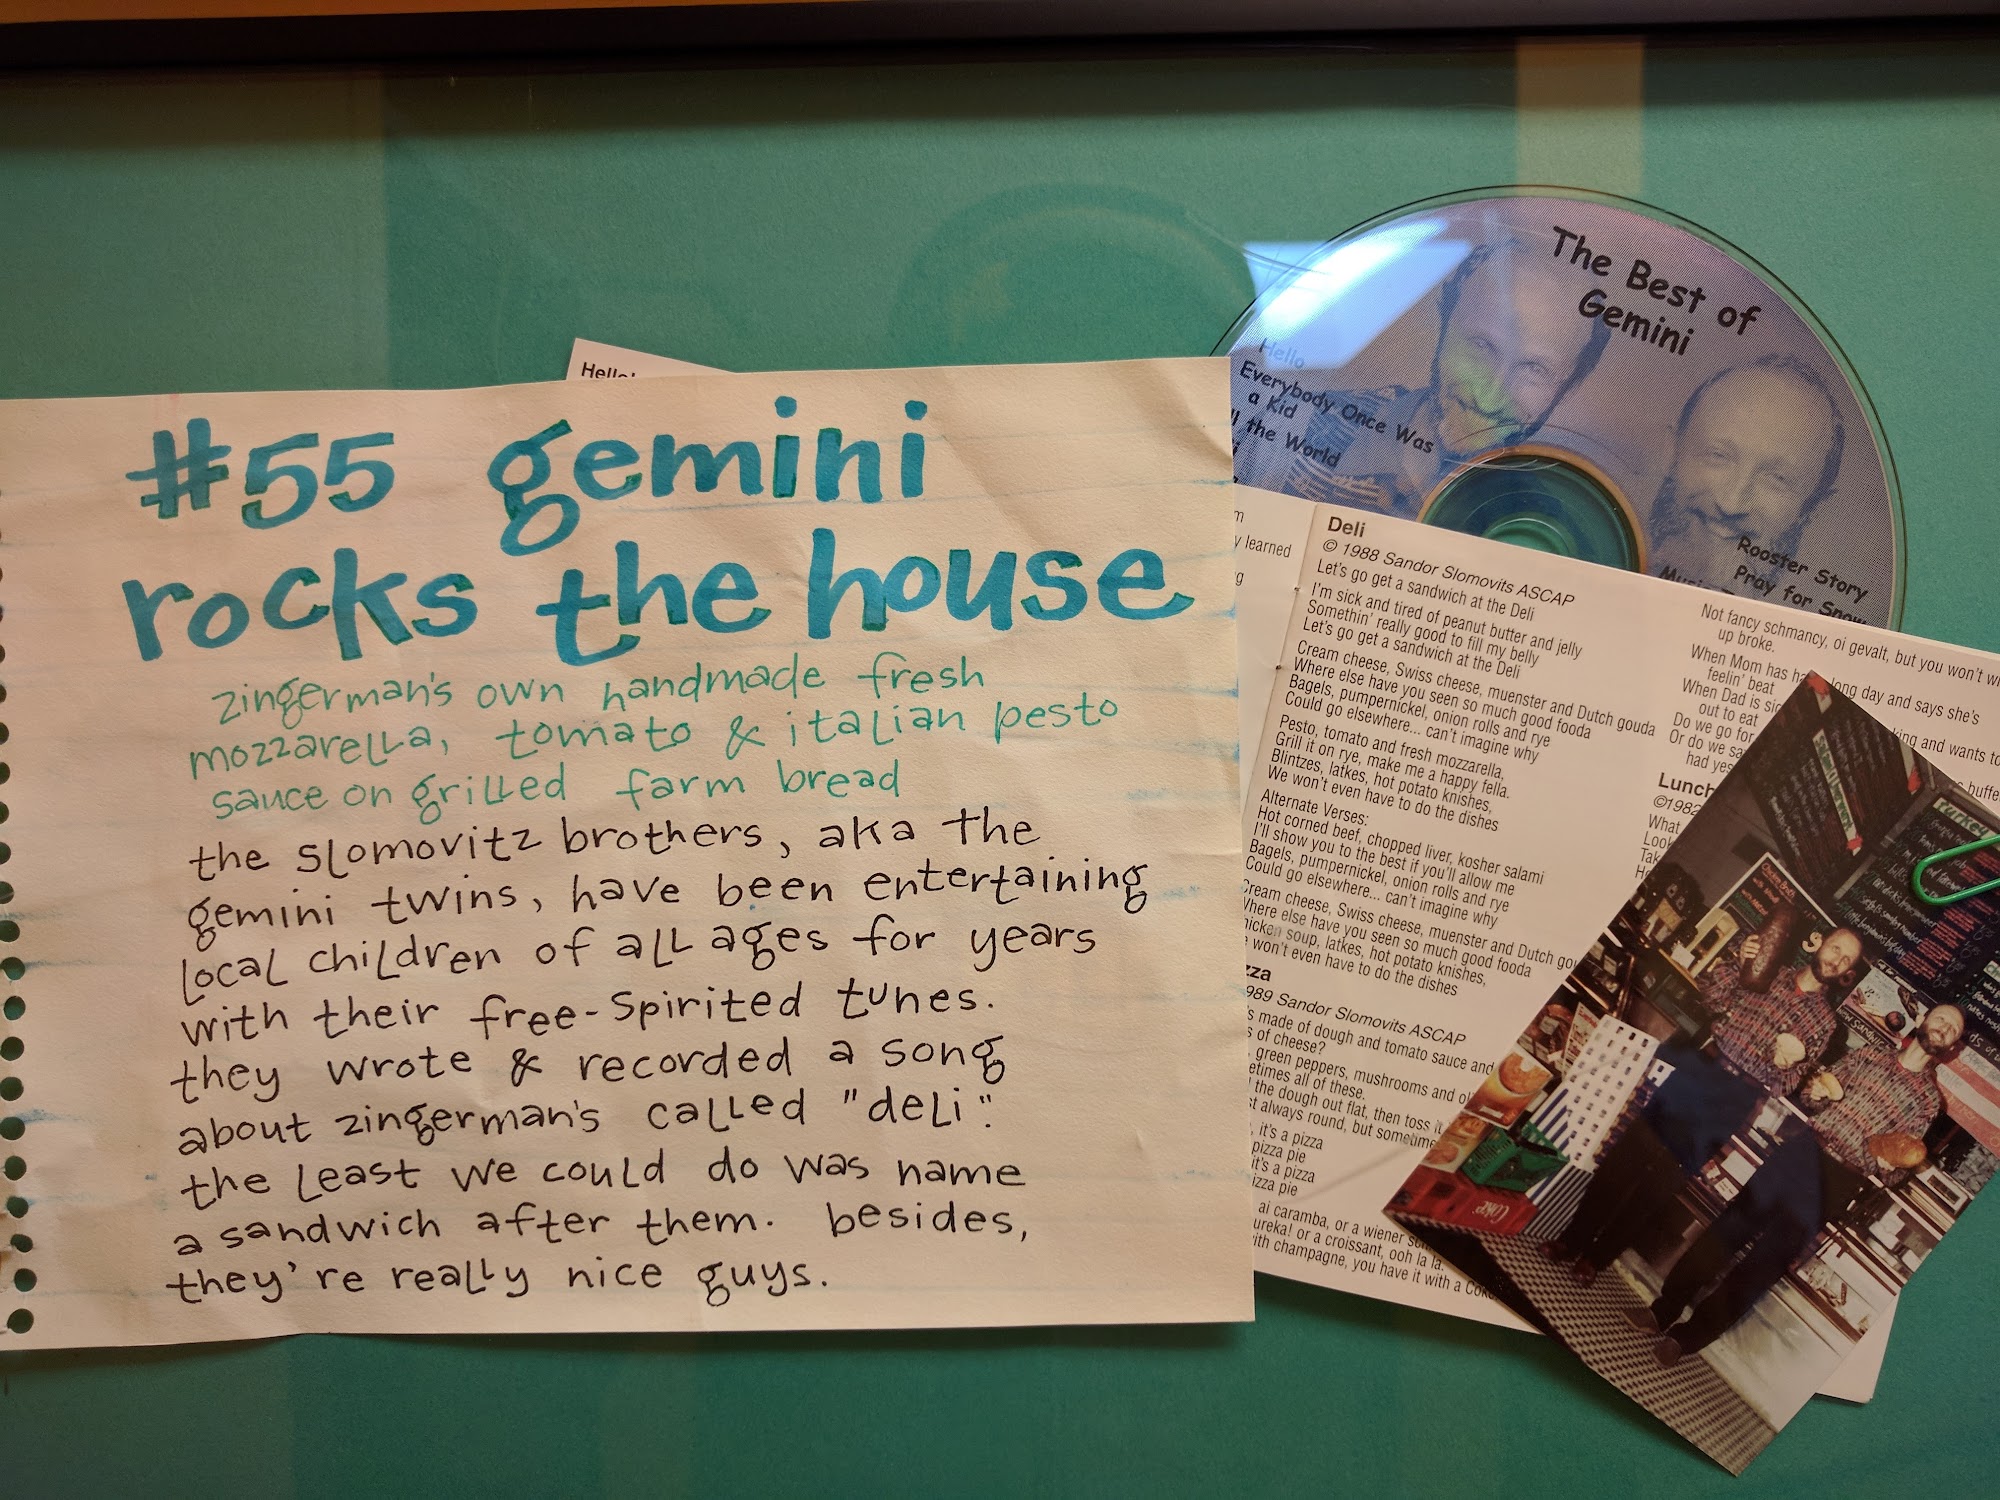 Hello!
#55 gemini
rocks the house
zingerman's own handmade fresh
mozzarella, tomato & italian pesto
sauce on grilled farm bread
the slomovitz brothers, aka the
gemini twins, have been entertaining
local children of all ages for years
with their free-spirited tunes.
they wrote & recorded a song
about zingerman's called "deli".
the least we could do was name
a sandwich after them. besides,
they're really nice guys.
The Best of
Gemini
Hello
Everybody Once Was
a Kid
the World
Rooster Story
Pray for Snow
learned
Deli
© 1988 Sandor Slomovits ASCAP
Let's go get a sandwich at the Deli
I'm sick and tired of peanut butter and jelly
Somethin' really good to fill my belly
Let's go get a sandwich at the Deli
Cream cheese, Swiss cheese, muenster and Dutch gouda
Where else have you seen so much good fooda
Bagels, pumpernickel, onion rolls and rye
Could go elsewhere... can't imagine why
Pesto, tomato and fresh mozzarella,
Grill it on rye, make me a happy fella.
Blintzes, latkes, hot potato knishes,
We won't even have to do the dishes
Alternate Verses:
Hot corned beef, chopped liver, kosher salami
I'll show you to the best if you'll allow me
Bagels, pumpernickel, onion rolls and rye
Could go elsewhere... can't imagine why
Cream cheese, Swiss cheese, muenster and Dutch
Where else have you seen so much good fooda
soup, latkes, hot potato knishes,
won't even have to do the dishes
Sandor Slomovits ASCAP
made of dough and tomato sauce and
of cheese?
green peppers, mushrooms and
all of these.
the dough out flat, then toss it
always round, but
it's a pizza
pizza pie
it's a pizza
pie
ai caramba, or a wiener
or a croissant, ooh la la.
with champagne, you have it with a
Not fancy schmancy, oi gevalt, but you won't
up broke.
When Mom has long day and says she's
feelin' beat
When Dad is and wants to
out to eat
Do we go for
Or do we
had
Lunch
©1982
What
Look
Coke